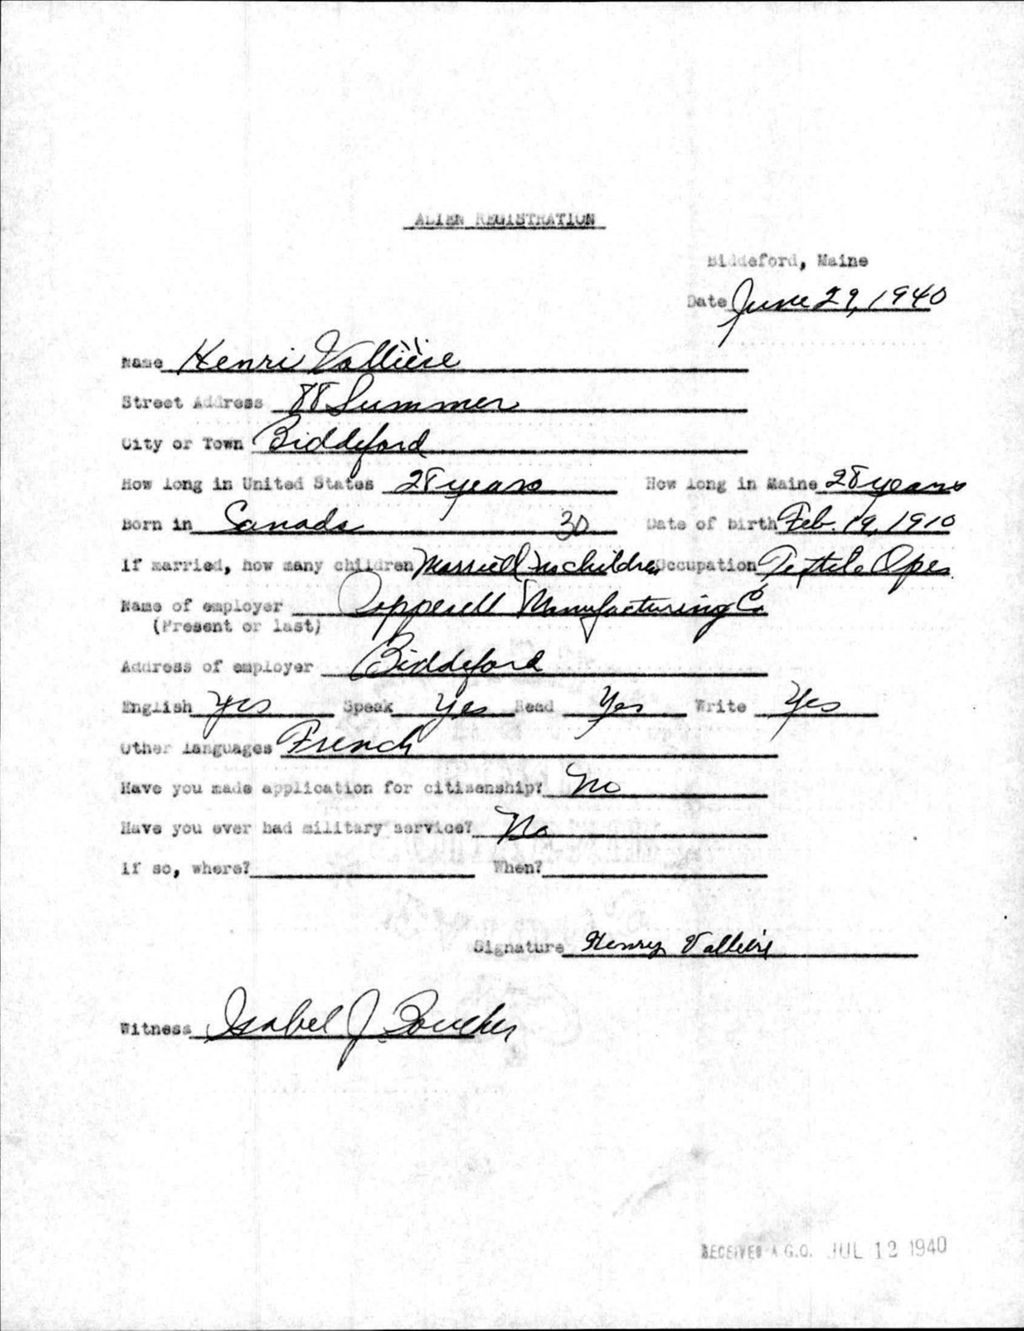 ALIEN REGISTRATION
Biddeford, Maine
Date June 29, 1940
Name Henri Vallière
Street Address 88 Summer
City or Town Biddeford
How long in United States 28 years How long in Maine 28 years
Born in Canada 30 Date of birth Feb. 19, 1910
If married, how many children Married no children Occupation Textile Oper.
Name of employer Pepperell Manufacturing Co
(Present or last)
Address of employer Biddeford
English Yes Speak Yes Read Yes Write Yes
Other languages French
Have you made application for citizenship? No
Have you ever had military service? No
If so, where? When?
Signature Henry Vallière
Witness Isabel J. Boucher
RECEIVED A.G.O. JUL 12 1940